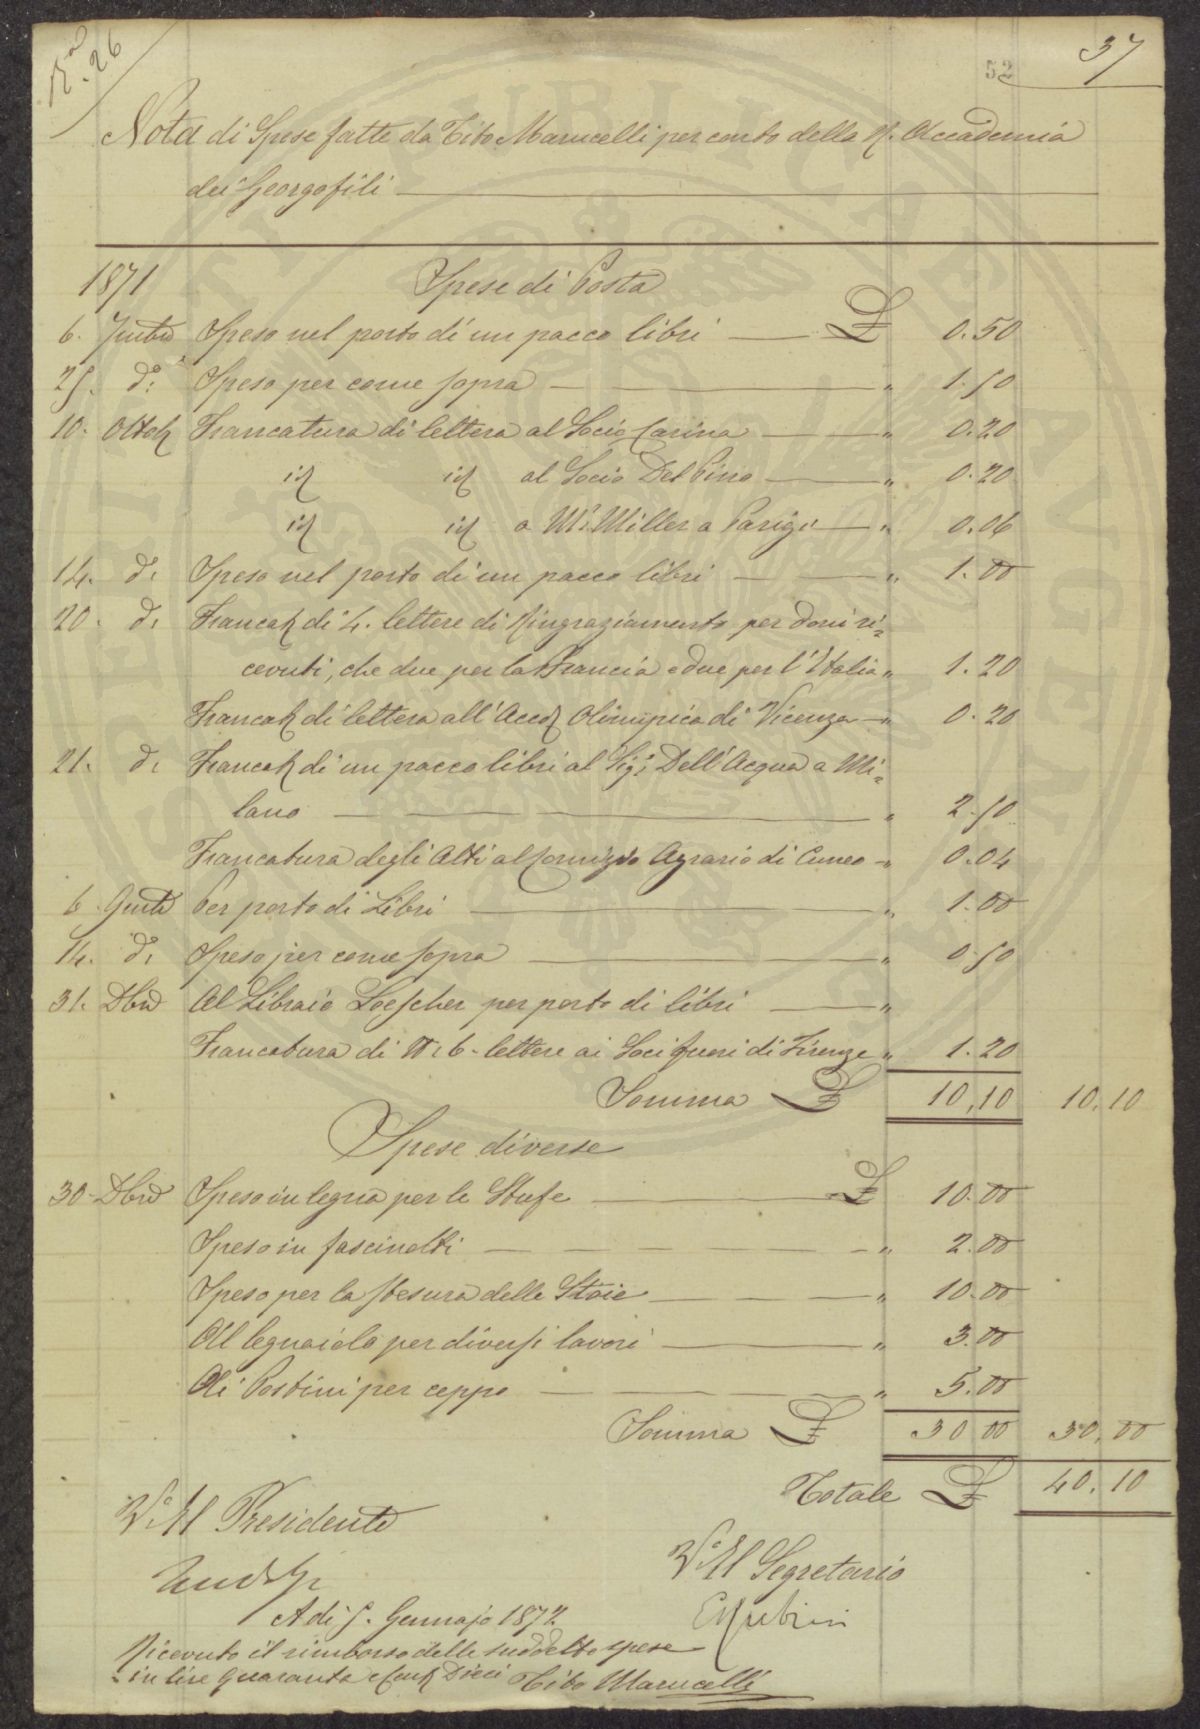 N.° 26
52
37
Nota di Spese fatte da Tito Marucelli per conto della R. Accademia
dei Georgofili
1871
Spese di Posta
6. Speso nel porto di un pacco libri £ 0.50
25. d.° Speso per come sopra " 1.50
10. Ottob Francatura di lettera al Socio Carina " 0.20
id id al Socio Del Pino " 0.20
id id a Mr. Miller a Parigi " 0.06
14. d.° Speso nel porto di un pacco libri " 1.00
20. d.° Francat di 4. lettere di Ringraziamento per doni ri=
cevuti, che due per la Francia e due per l'Italia " 1.20
Francat di lettera all'Accad Olimpica di Vicenza " 0.20
21. d.° Francat di un pacco libri al Sig. Dell'Acqua a Mi=
lano " 2.50
Francatura degli Atti al Comizio Agrario di Cuneo " 0.04
6 Per porto di Libri " 1.00
14. d.° Speso per come sopra " 0.50
31. Dbre Al Libraio Loescher per porto di libri "
Francatura di N.° 6 lettere ai Soci fuori di Firenze " 1.20
Somma £ 10,10 10,10
Spese diverse
30. Dbre Speso in legna per le Stufe £ 10.00
Speso in fascinotti " 2.00
Speso per la stesura delle Stoie " 10.00
Al legnaiolo per diversi lavori " 3.00
Ai Postini per ceppo " 5.00
Somma £ 30 00 30,00
Totale £ 40,10
V.° Il Presidente
V.° Il Segretario
A dì 5. Gennajo 1872
Ricevuto il rimborso delle suddette spese
in lire quaranta e Cent Dieci Tito Marucelli